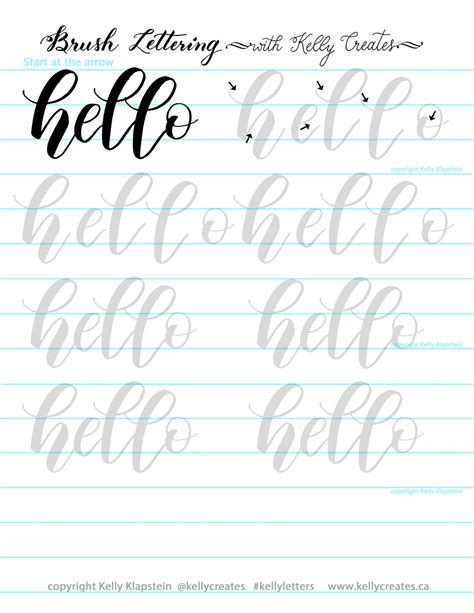 Brush Lettering ~with Kelly Creates~
Start at the arrow
hello hello
copyright Kelly Klapstein
hello hello
hello hello
copyright Kelly Klapstein
hello hello
copyright Kelly Klapstein
copyright Kelly Klapstein @kellycreates #kellyletters www.kellycreates.ca